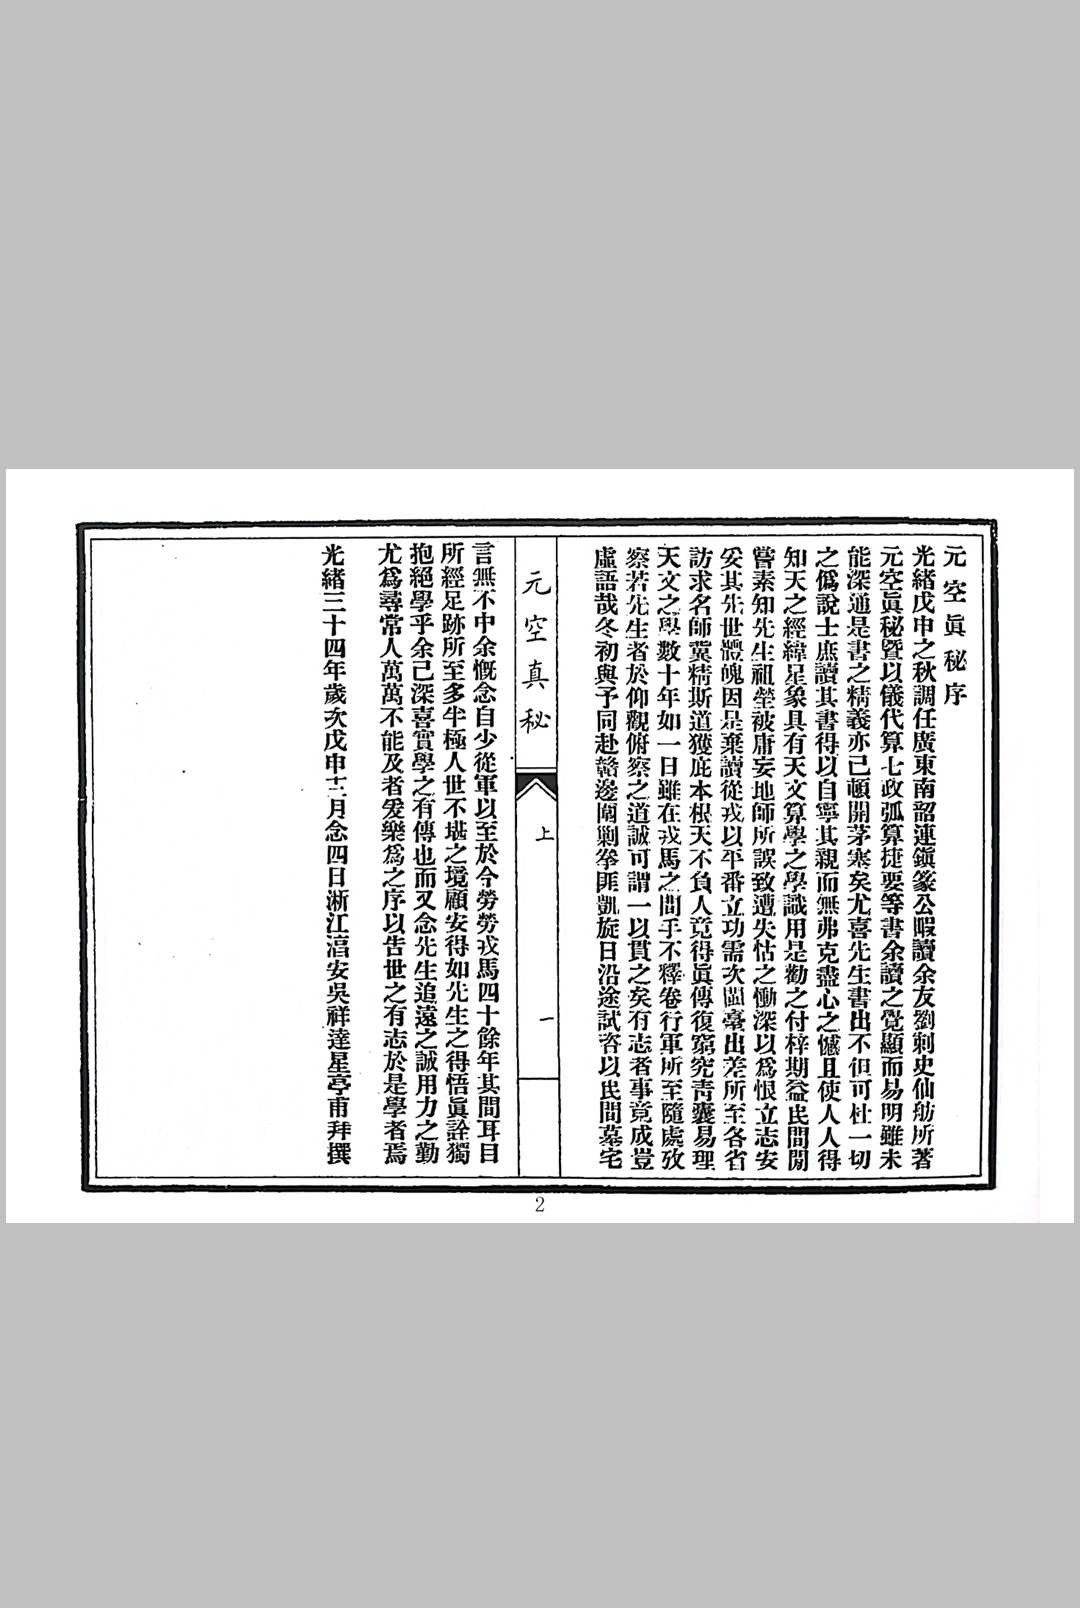 元空眞秘序
光緒戊申之秋調任廣東南韶連鎭篆公暇讀余友劉刺史仙舫所著
元空眞秘曁以儀代算七政弧算捷要等書余讀之覺顯而易明雖未
能深通是書之精義亦已頓開茅塞矣尤喜先生書出不但可杜一切
之僞說士庶讀其書得以自寧其親而無弗克盡心之憾且使人人得
知天之經緯星象具有天文算學之學識用是勸之付梓期益民間閒
嘗素知先生祖塋被庸妄地師所誤致遭失怙之慟深以爲恨立志安
妥其先世體魄因是棄讀從戎以平番立功需次閩臺出差所至各省
訪求名師冀精斯道獲庇本根天不負人竟得眞傳復窮究靑囊易理
天文之學數十年如一日雖在戎馬之間手不釋卷行軍所至隨處攷
察若先生者於仰觀俯察之道誠可謂一以貫之矣有志者事竟成豈
虛語哉冬初與予同赴贛邊閫剿拳匪凱旋日沿途試咨以民間墓宅
元空真秘
上
一
言無不中余慨念自少從軍以至於今勞勞戎馬四十餘年其間耳目
所經足跡所至多半極人世不堪之境顧安得如先生之得悟眞詮獨
抱絕學乎余已深喜實學之有傳也而又念先生追遠之誠用力之勤
尤爲尋常人萬萬不能及者爰樂爲之序以告世之有志於是學者焉
光緒三十四年歲次戊申十二月念四日浙江淳安吳祥達星亭甫拜撰
2